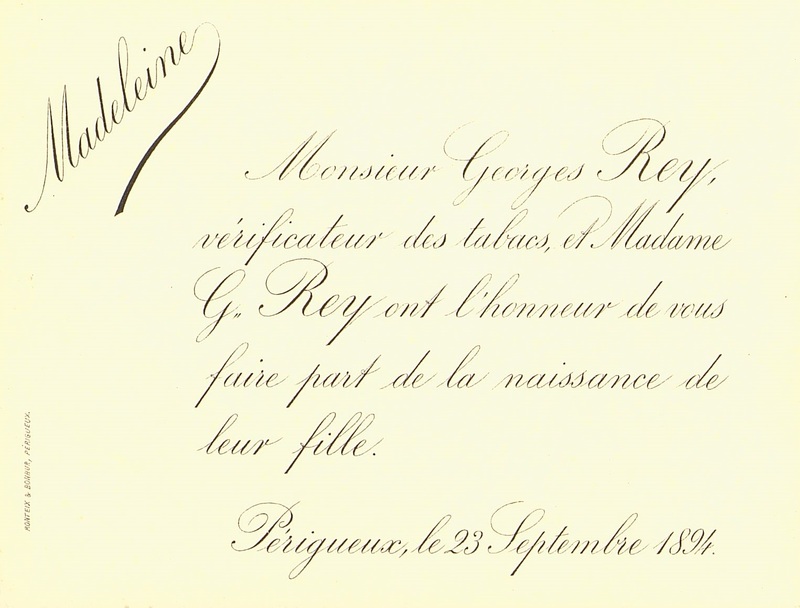 Madeleine
Monsieur Georges Rey,
vérificateur des tabacs, et Madame
G. Rey ont l'honneur de vous
faire part de la naissance de
leur fille.
Périgueux, le 23 Septembre 1894.
MONTEIX & BONHUR, PÉRIGUEUX.